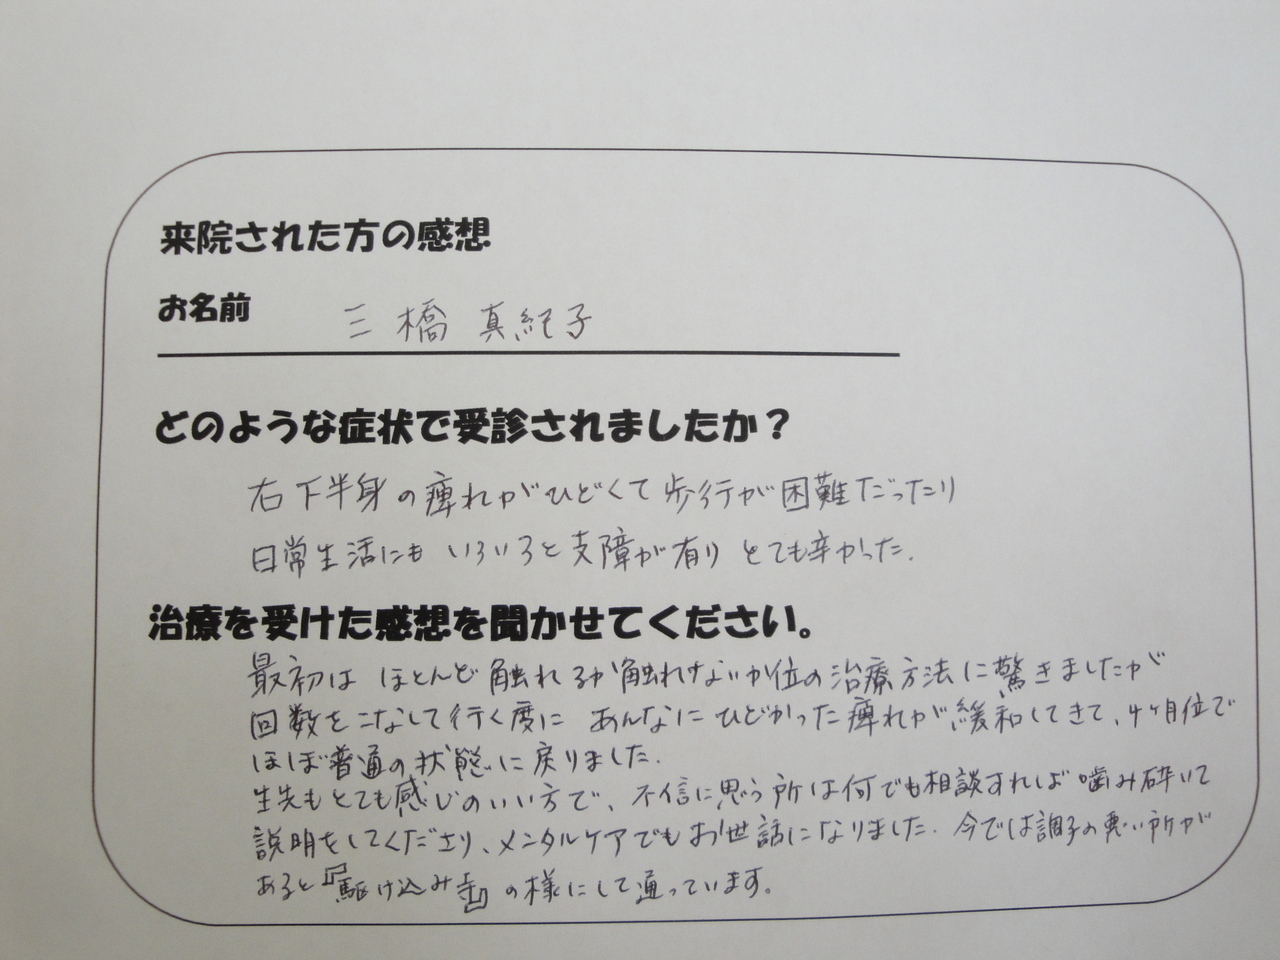 来院された方の感想
お名前 三橋 真紀子
どのような症状で受診されましたか？
右下半身の痺れがひどくて歩行が困難だったり
日常生活にも いろいろと支障が有り とても辛かった.
治療を受けた感想を聞かせてください。
最初は ほとんど触れるか触れないか位の治療方法に驚きましたが
回数をこなして行く度に あんなにひどかった痺れが緩和してきて、4ヶ月位で
ほぼ普通の状態に戻りました.
生先もとても感じのいい方で、不信に思う所は何でも相談すれば噛み砕いて
説明をしてくださり、メンタルケアでもお世話になりました. 今では調子の悪い所が
あると『駆け込み寺』の様にして通っています。